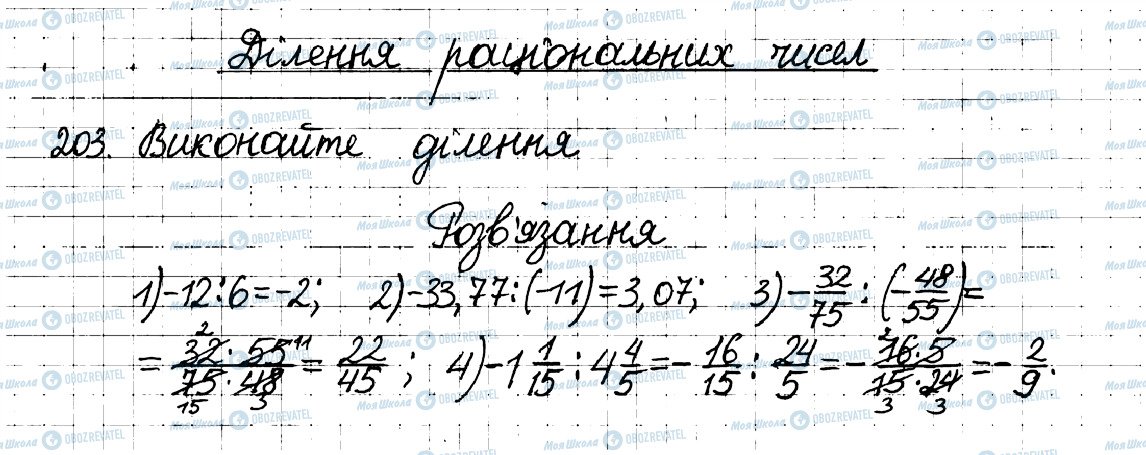 Ділення раціональних чисел
203. Виконайте ділення
Розв'язання
1) -12 : 6 = -2; 2) -33,77 : (-11) = 3,07; 3) -32/75 : (-48/55) =
= (32 · 55)/(75 · 48) = 22/45; 4) -1 1/15 : 4 4/5 = -16/15 : 24/5 = -(16 · 5)/(15 · 24) = -2/9.